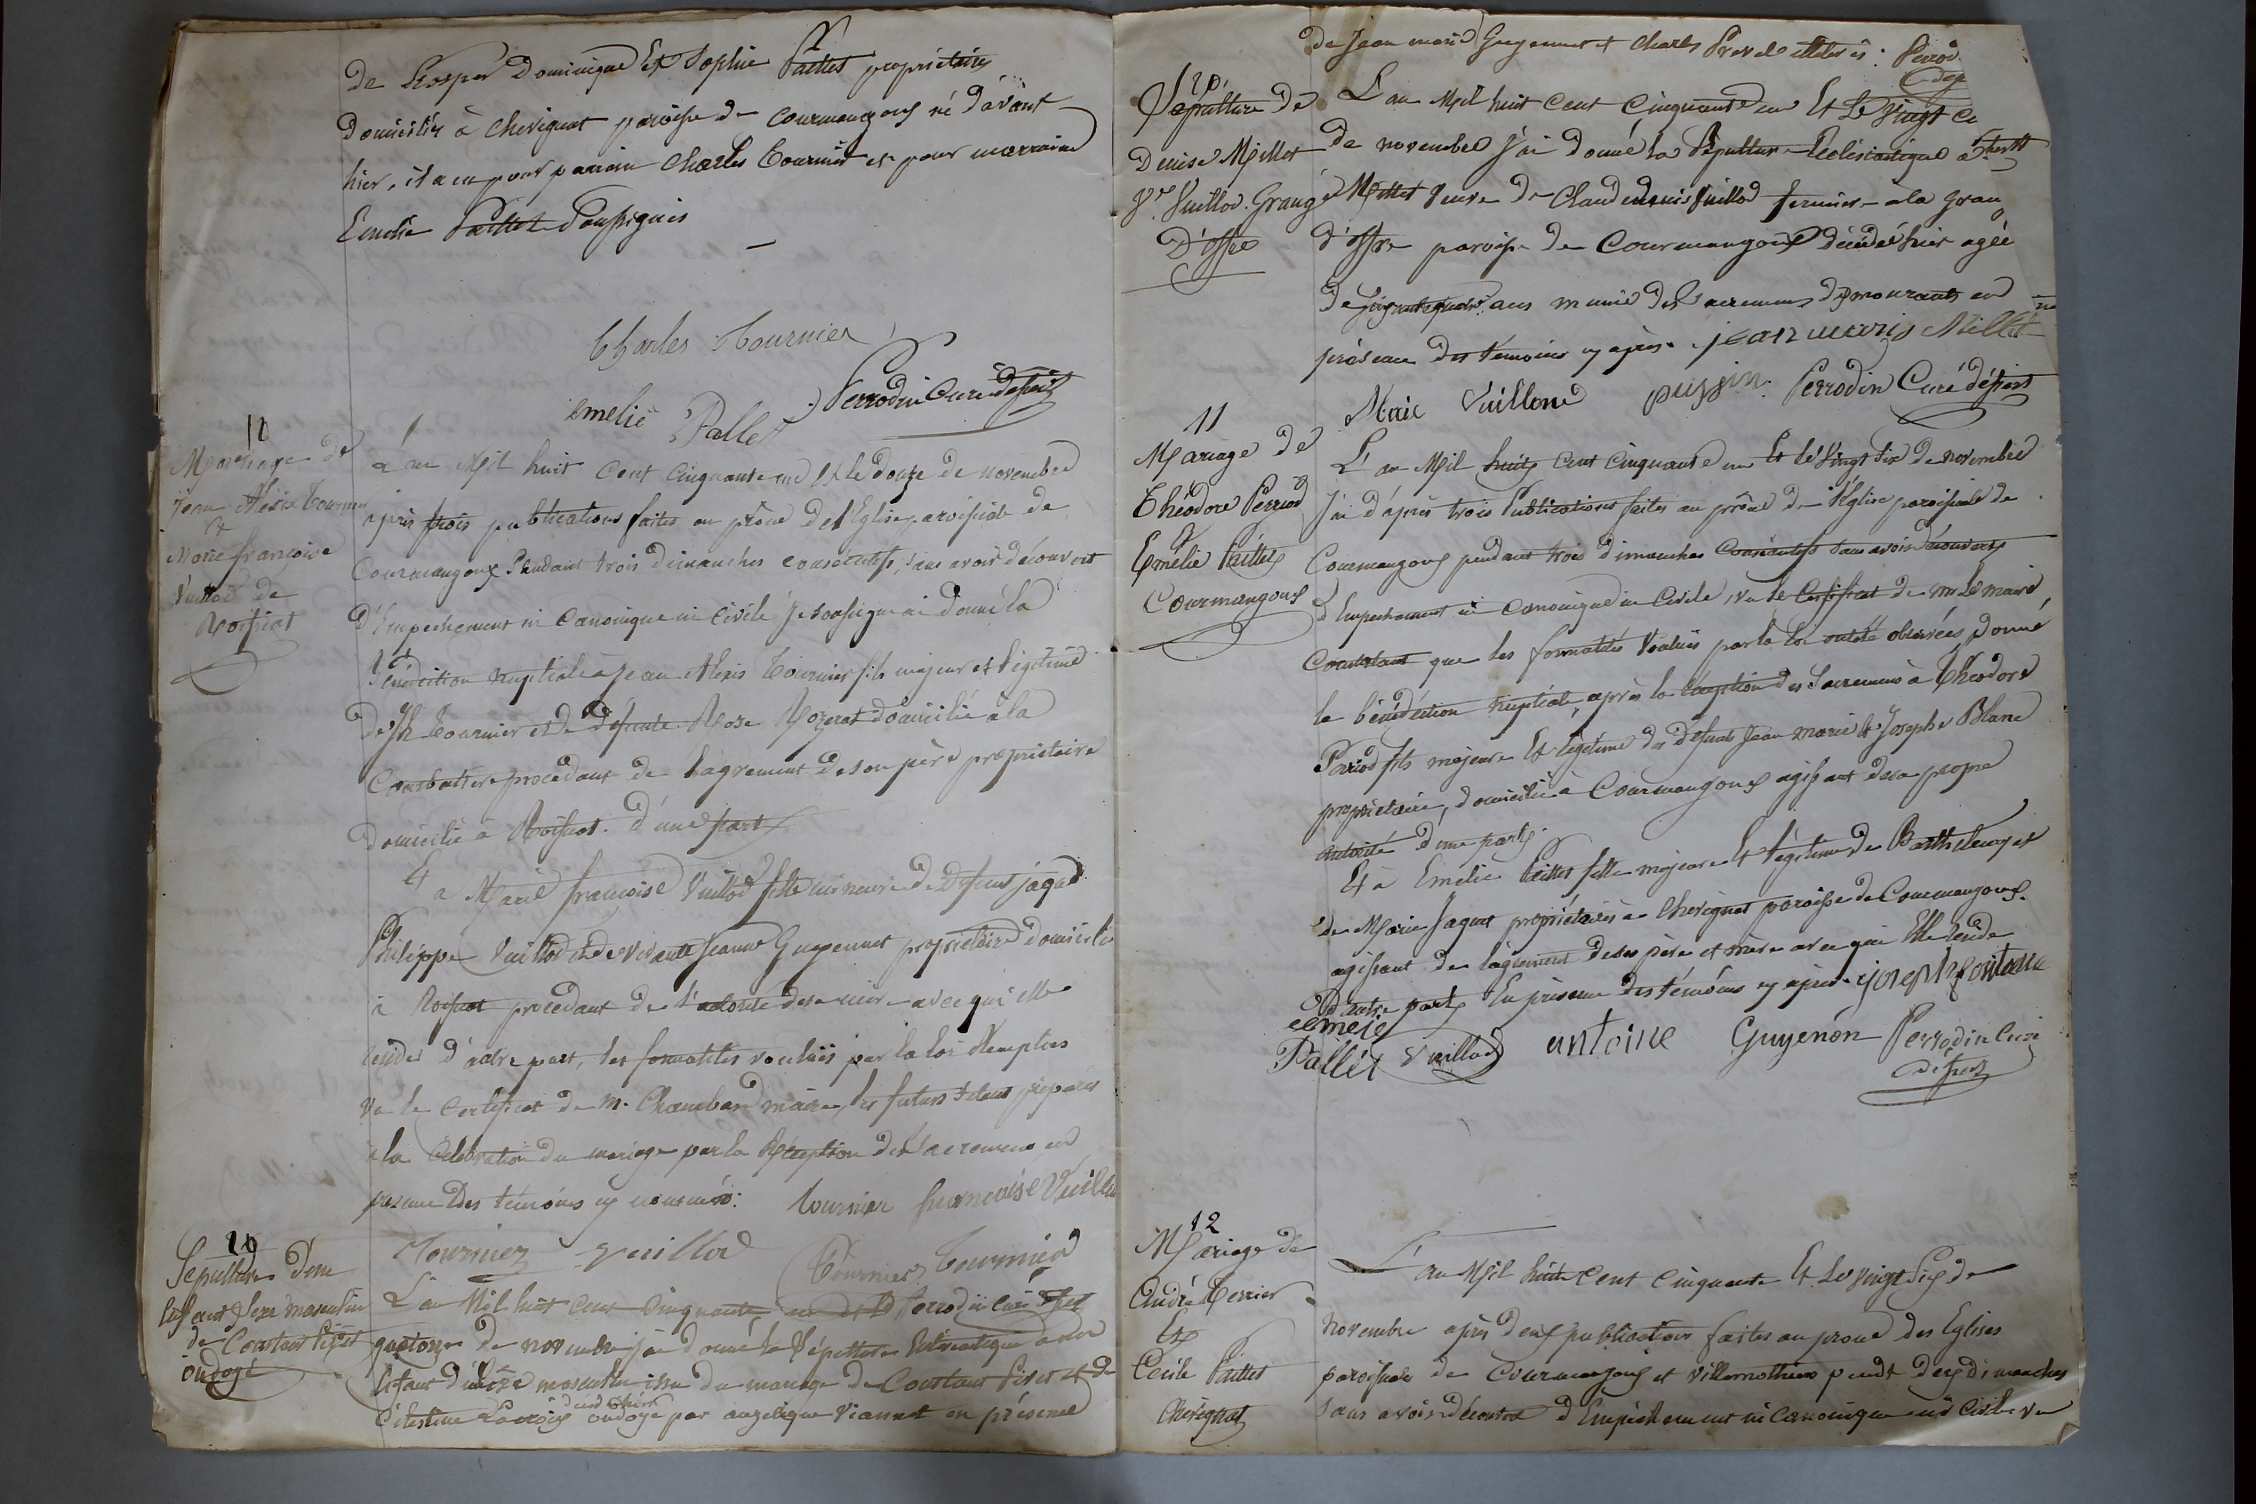 de Prosper Dominique et Sophie Paillet propriétaires
domiciliés à chevignat paroisse de courmangoux né d'avant
hier, il a eu pour parrain Charles Tournier et pour marraine
Emélie Paillet soussignés
Charles Tournier
emelie Pallet Perrodin Curé dess
10
Mariage de
Jean Alexis Tournier
et
Marie françoise
Vuillod de
Roissiat
L'an Mil huit cent cinquante un et le douze de novembre
après trois publications faites au prône de l'Eglise paroissiale de
Courmangoux Pendant trois dimanches consécutifs, sans avoir découvert
d'Empechement ni canonique ni civile je soussigné ai donné la
Bénédiction nuptiale à Jean Alexis Tournier fils majeur et légitime
de Jh Tournier et de défunte Rose Rozerat domicilié à la
procédant de l'agrément de son père propriétaire
domicilié à Roissiat. d'une part
Et a Marie françoise Vuillod fille mineure de défunt
Philippe Vuillod et de vivante Jeanne Guyennet propriétaire domicilié
à Roissiat procédant de l'autorité de sa mère avec qui elle
réside d'autre part, les formalités voulues par la loi Remplies
vu le certificat de m. Chambard maire, les futurs s'étant préparés
à la Célébration du mariage par la Réception des Sacremens en
présence des témoins cy nommés: tournier francoise Vuillo
Tournier Vuillod Tournier Tournier
Perrodin curé
Sépulture d'un
Enfant de sexe masculin
de Constant
ondoyé
L'an Mil huit cent Cinquante un et le
quatorze de novembre j'ai donné la Sépulture Ecclésiastique à un
Enfant de sexe masculin issu du mariage de Constant et de
Célestine Lacroix ondoyé par angelique Viannet en présence
de Jean marie Guyennet et Charles Prevel illitérés: Perrod
Sépulture de
Denise Millet
Ve Vuillod. Grange
D'Offre
L'an Mil huit cent cinquante un Et Le Vingt
de novembre j'ai donné la Sépulture Ecclésiastique à
Millet Veuve de Claude denis Vuillod fermier à la Grang
d'offre paroisse de Courmangoux décédée hier agée
de soixante quatre ans munie des Sacremens des mourants en
présence des témoins cy après. jean marie Millet
Marie Vuillone puffin. Perrodin Curé déss
11
Mariage de
Théodore Perriod
et
Emélie Paillet
Courmangoux
L'an Mil huit cent cinquante un Et le Vingt six de novembre
J'ai d'après trois Publications faites au prône de l'Église paroissiale de
Courmangoux pendant trois dimanches consécutifs sans avoir découvert
d'Empechement ni canonique ni Civile, vu le Certificat de mr Le maire
Constatant que les formalités Voulues par la loi ont été observées, donné
la bénédiction nuptiale, après la réception des Sacremens à Théodore
Perriod fils majeur Et légitime de défunts Jean marie et Josephe Blanc
propriétaire, domicilié à Courmangoux agissant de sa propre
autorité d'une part.
Et à Emélie Paillet fille majeure Et légitime de Barthelemy et
de Marie Jaquet propriétaires à Chevignat paroisse de Courmangoux.
agissant de l'agrément de ses père et mère avec qui Elle réside
d'autre part. En présence des témoins cy après. joseph fontaine
emeie
Pallét Vuillod antoine Guyenón Perrodin Curé
dess
12
Mariage de
André Terrier
Et
Cécile Paillet
Chevignat
L'an Mil huit Cent Cinquante Et Le Vingt Six de
Novembre après deux publications faites au prone des Eglises
paroissiales de Courmangoux et Villemothier pendt deux dimanches
sans avoir découvert d'Empêchement ni Canonique ni Civile vu